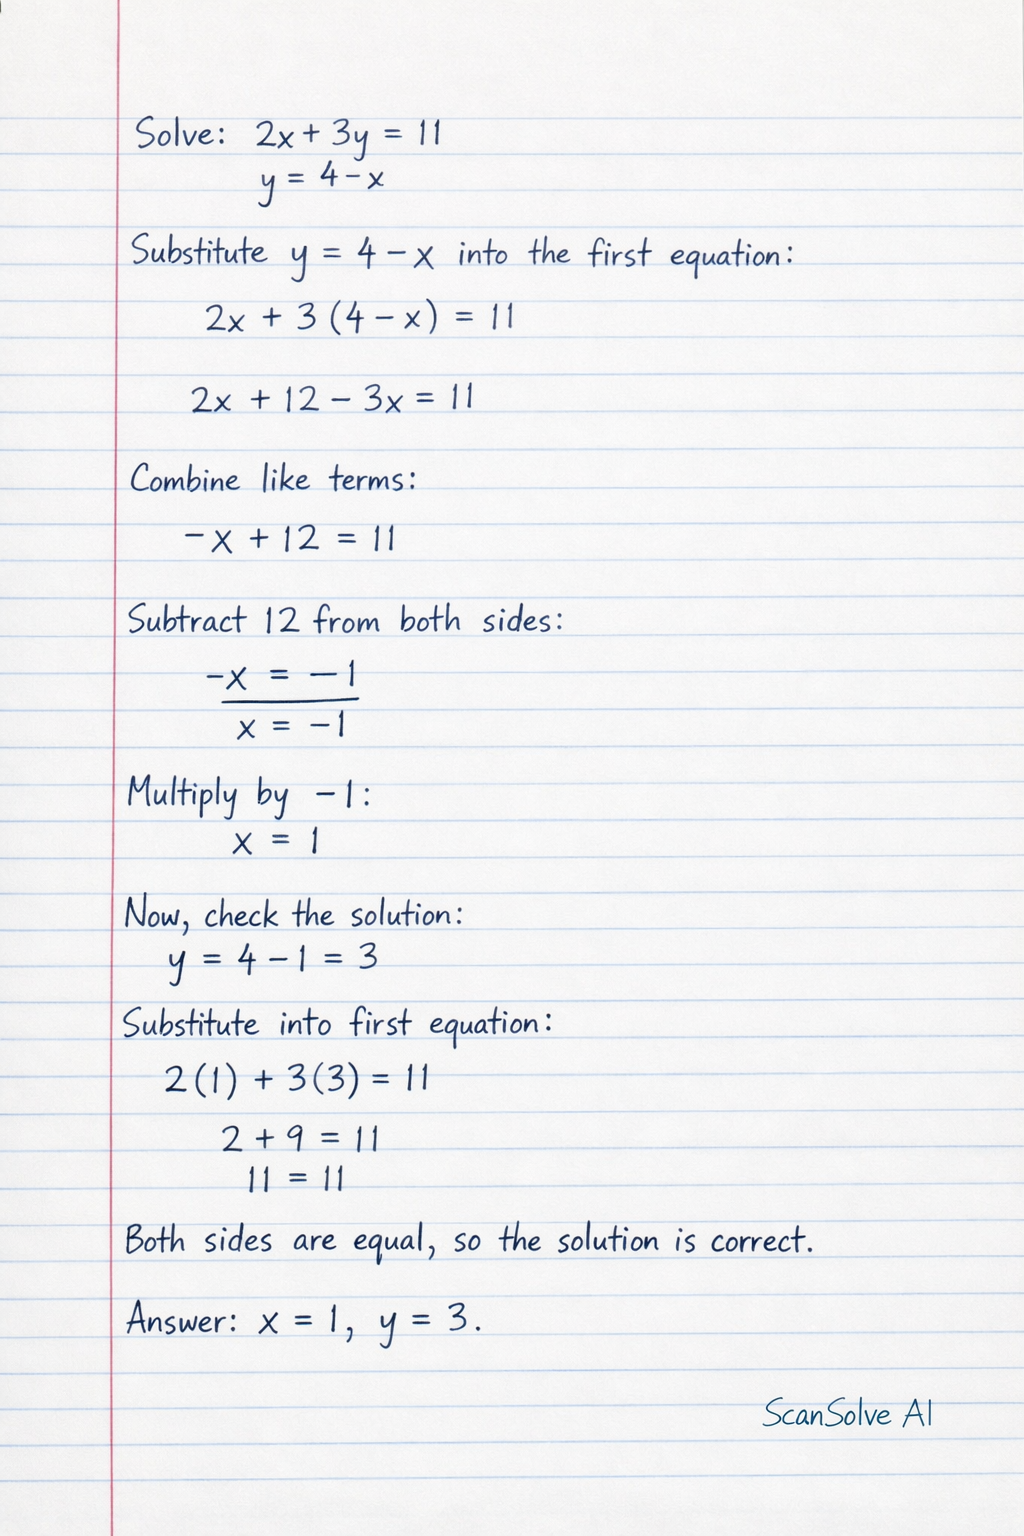 Solve: 2x + 3y = 11
y = 4 - x
Substitute y = 4 - x into the first equation:
2x + 3 (4 - x) = 11
2x + 12 - 3x = 11
Combine like terms:
-x + 12 = 11
Subtract 12 from both sides:
-x = -1
x = -1
Multiply by -1:
x = 1
Now, check the solution:
y = 4 - 1 = 3
Substitute into first equation:
2(1) + 3(3) = 11
2 + 9 = 11
11 = 11
Both sides are equal, so the solution is correct.
Answer: x = 1, y = 3.
ScanSolve AI